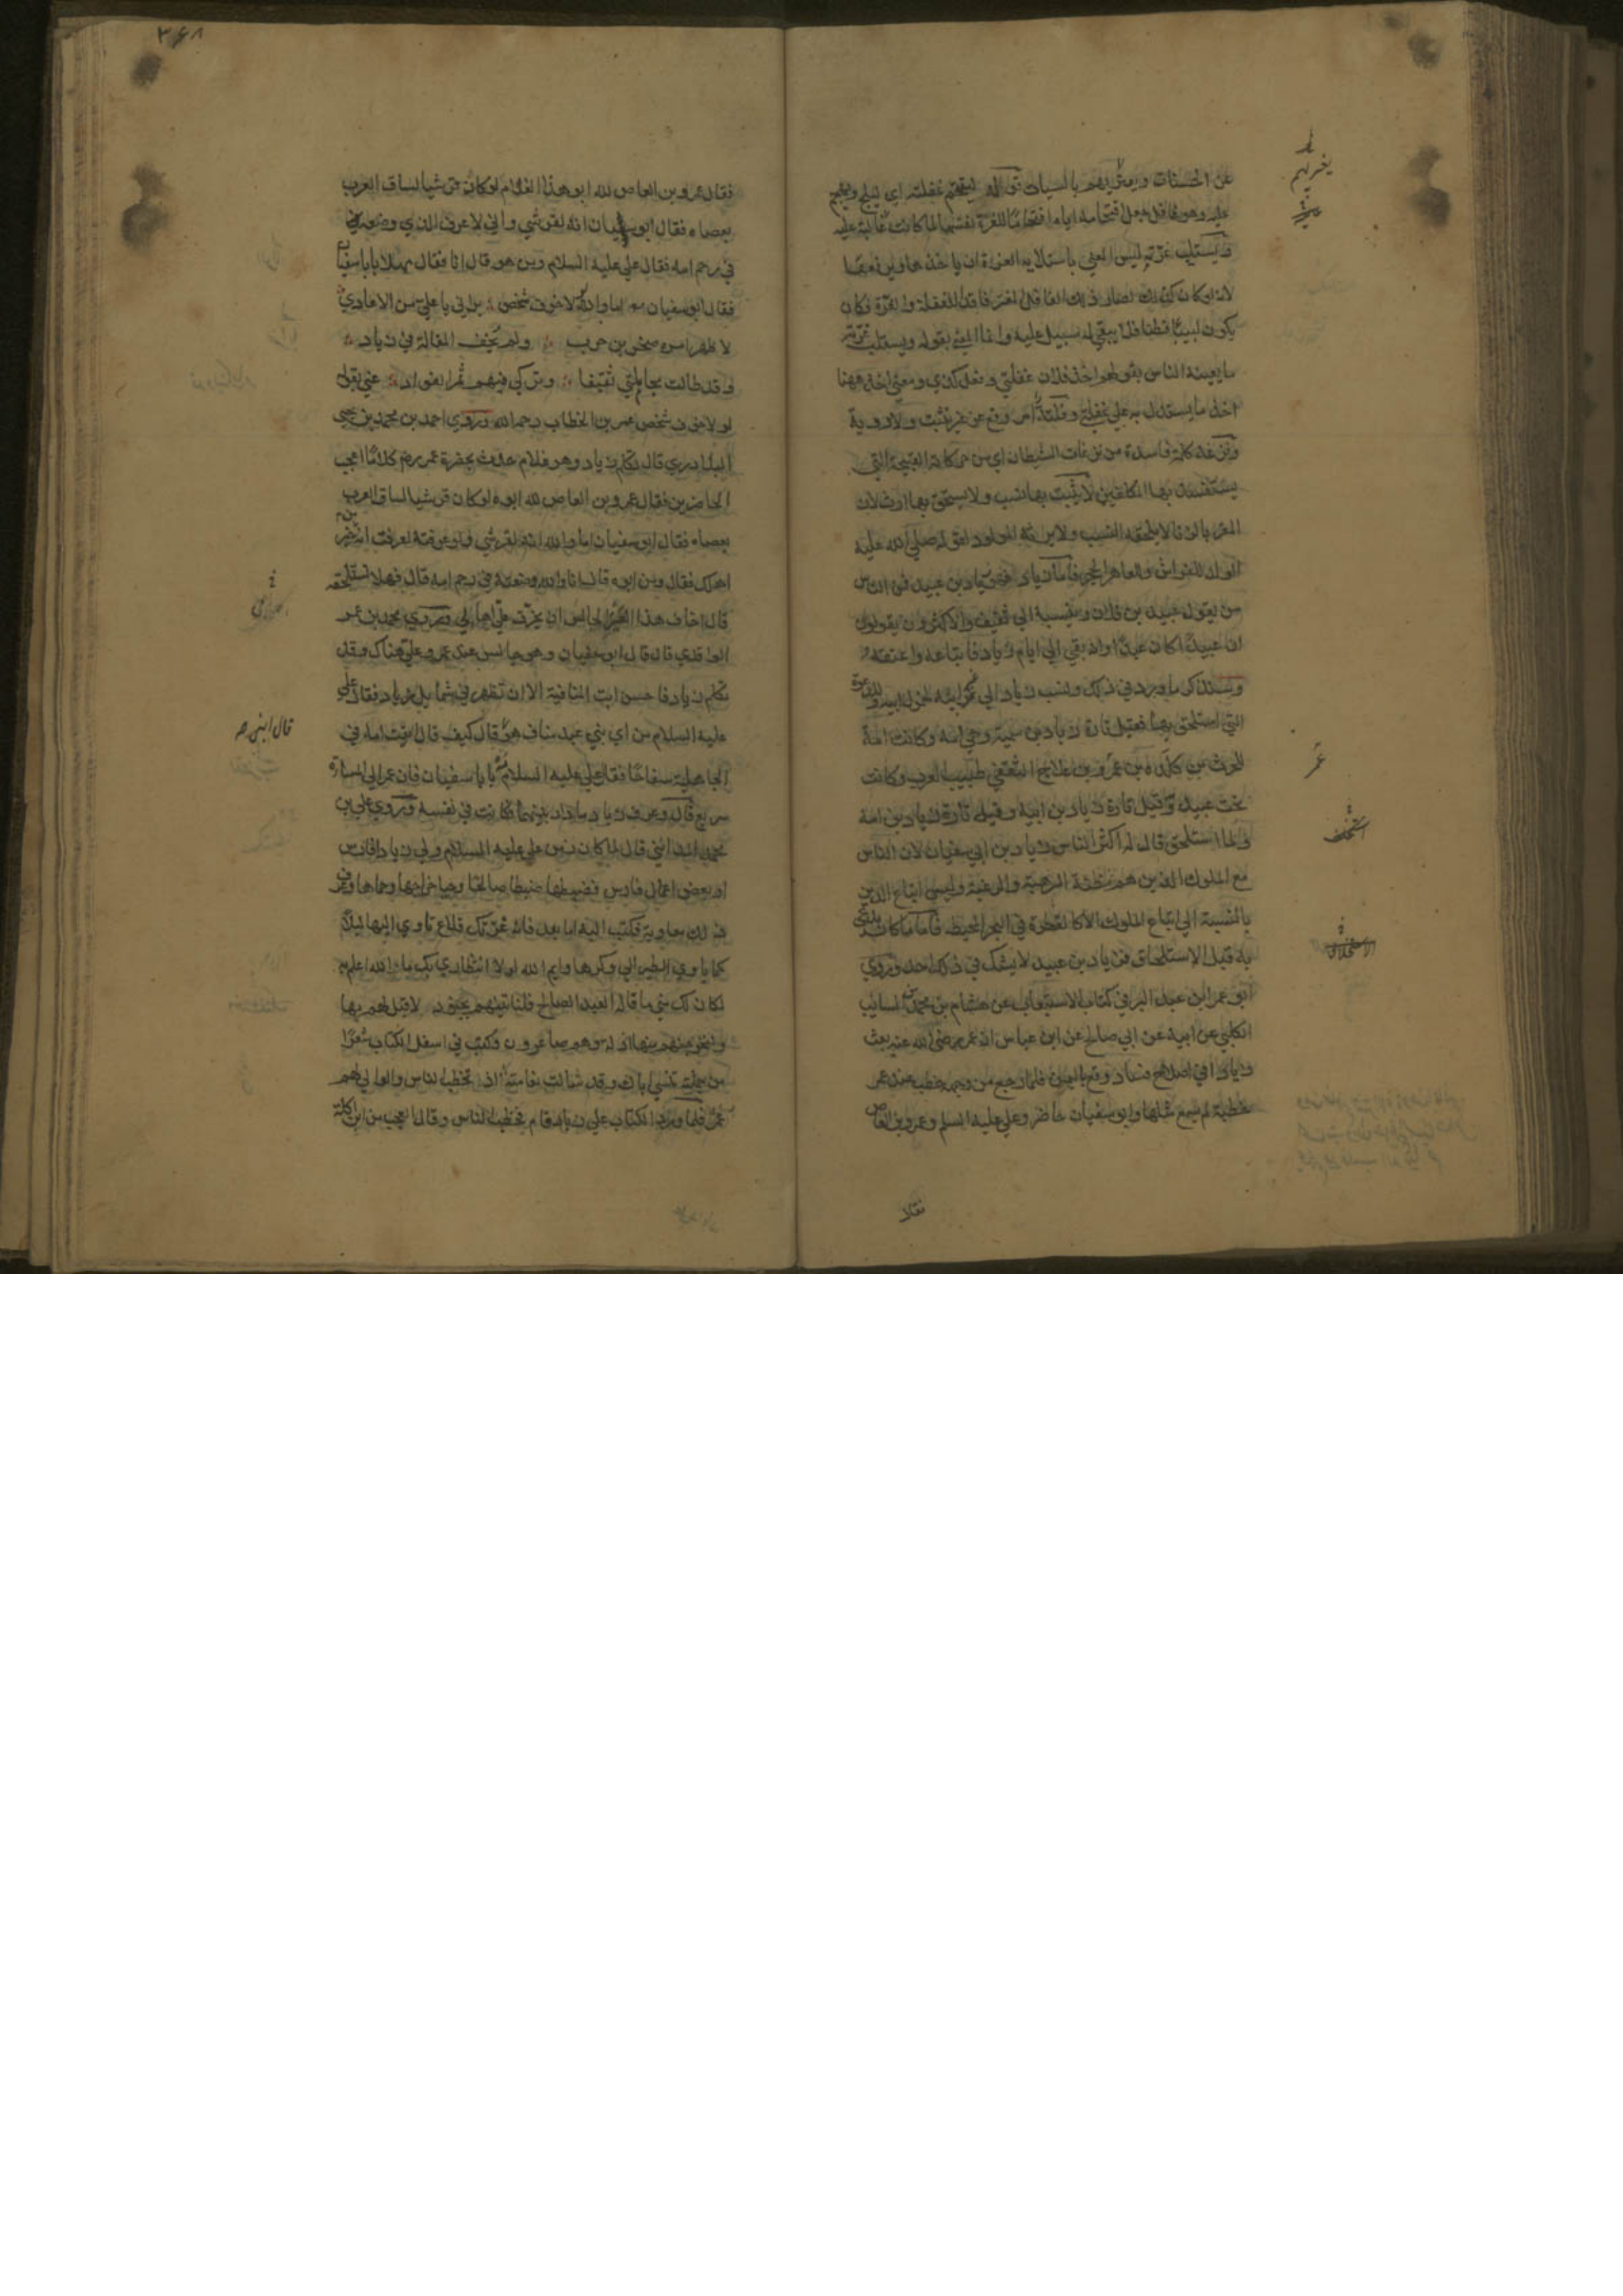 عن الحسنات ويغريهم بالسيات ثم قال ليقتحم غفلته اي ليلج ويهجم
عليه وهو غافل جعل اقتحامه اياه اقتحاما للغرة نفسها لما كانت غالبة عليه
ويستلب غرته ليس المعني باستلابه الغرة ان ياخذها
لانه لو كان كذلك لصار ذلك الغافل المغتر فاقدا للغفلة والغرة وكان
يكون لبيبا فطنا فلا يبقي له سبيل عليه وانما المعني بقوله ويستلب غرته
ما يعنيه الناس بقولهم اخذ فلان غفلتي وفعل كذي ومعني اخذ ههنا
اخذ ما يستدل به علي غفلتي وفلتة امر وقع عن غير تثبت ولا روية
ونزغة كلمة فاسدة من نزغات الشيطان اي من حركاته القبيحة التي
يستفسد بها المكلفين لا يثبت بها نسب ولا يستحق بها ارث لان
المقر بالزنا لا يلحقه النسب ولا يرثه المولود لقوله صلي الله عليه
الولد للفراش وللعاهر الحجر فاما زياد فهو زياد بن عبيد فمن الناس
من يقول عبيد بن فلان وينسبه الي ثقيف والاكثرون يقولون
ان عبيدا كان عبدا وانه بقي الي ايام زياد فابتاعه واعتقه
وسنذكر ما ورد في ذلك ونسب زياد الي غير ابيه لخمول ابيه وللدعوة
التي استلحق بها فقيل تارة زياد بن سمية وهي امه وكانت امة
للحرث بن كلدة بن عمرو بن علاج الثقفي طبيب العرب وكانت
تحت عبيد وقيل تارة زياد بن ابيه وقيل تارة زياد بن امه
ولما استلحق قال له اكثر الناس زياد بن ابي سفيان لان الناس
مع الملوك الذين هم مظنة الرهبة والرغبة وليس اتباع الدين
بالنسبة الي اتباع الملوك الا كالقطرة في البحر المحيط فاما ما كان يدعي
به قبل الاستلحاق فزياد بن عبيد لا يشك في ذلك احد وروي
ابو عمر ابن عبد البر في كتاب الاستيعاب عن هشام بن محمد بن السايب
الكلبي عن ابيه عن ابي صالح عن ابن عباس ان عمر رضي الله عنه بعث
زيادا في اصلاح فساد وقع باليمن فلما رجع من وجهه خطب عند عمر
خطبة لم يسمع مثلها وابو سفيان حاضر وعلي عليه السلم وعمرو بن العاص
يغريهم
عمر
فقال
٣٦٨
فقال عمرو بن العاص لله ابو هذا الغلام لو كان قرشيا لساق العرب
بعصاه فقال ابو سفيان انه لقرشي واني لاعرف الذي وضعه
في رحم امه فقال علي عليه السلام ومن هو قال انا فقال مهلا يا با سفيان
فقال ابو سفيان اما والله لولا خوف شخص يراني يا علي من الاعادي
لاظهر امره صخر بن حرب ولم يخف المقالة في زياد
وقد طالت مجاملتي ثقيفا وتركي فيهم ثمر الفواد عني بقوله
لولا خوف شخص عمر بن الخطاب رحمه الله وروي احمد بن محمد بن يحيي
البلاذري قال تكلم زياد وهو غلام حدث بحضرة عمر رض كلاما اعجب
الحاضرين فقال عمرو بن العاص لله ابوه لو كان قرشيا لساق العرب
بعصاه فقال ابو سفيان اما والله انه لقرشي ولو عرفته لعرفت انه خير
اهلك فقال ومن ابوه قال انا والله وضعته في رحم امه قال فهلا تستلحقه
قال اخاف هذا العير الجالس ان يخرق علي اهابي وروي محمد بن عمر
الواقدي قال قال ابو سفيان وهو جالس عند عمر وعلي هناك وقد
تكلم زياد فاحسن ابت المنافية الا ان تظهر في شمايل زياد فقال علي
عليه السلام من اي بني عبد مناف هو قال كيف قال اتيت امه في
الجاهلية سفاحا فقال علي عليه السلام مه يا با سفيان فان عمر الي المساءة
سريع قال وعرف زياد ما دار بينهما فكانت في نفسه وروي علي بن
محمد المدايني قال لما كان زمن علي عليه السلام ولي زيادا فارس
او بعض اعمال فارس فضبطها ضبطا صالحا وجبا خراجها وحماها وعرف
ذلك معاوية فكتب اليه اما بعد فانه غرتك قلاع تاوي اليها ليلا
كما ياوي الطير الي وكرها وايم الله لولا انتظاري بك ما الله اعلم به
لكان لك مني ما قاله العبد الصالح فلناتينهم بجنود لا قبل لهم بها
ولنخرجنهم منها اذلة وهم صاغرون وكتب في اسفل الكتاب شعرا
من جملته تنسي اباك وقد شالت نعامته اذ تخطب الناس والوالي لهم
عمر فلما ورد الكتاب علي زياد قام فخطب الناس وقال العجب من ابن اكلة
قال ابني